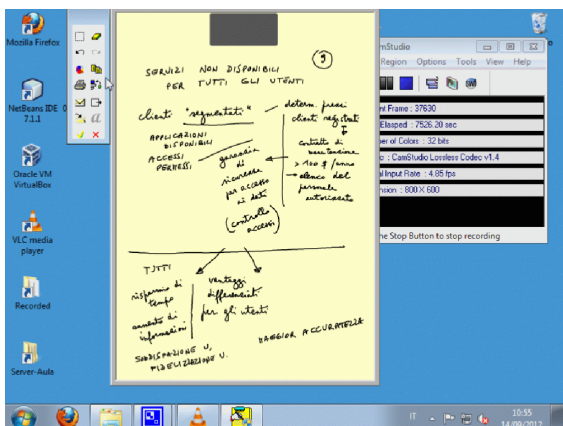 Mozilla Firefox
NetBeans IDE
7.1.1
Oracle VM
VirtualBox
VLC media
player
Recorded
Server-Aula
9
SERVIZI NON DISPONIBILI
PER TUTTI GLI UTENTI
clienti "segmentati"
determ. prezzi
clienti registrati
APPLICAZIONI
DISPONIBILI
ACCESSI
PERMESSI
garanzia
di
sicurezza
per accesso
ai dati
(controllo
accessi)
contratto di
> 100 $ / anno
elenco del
personale
autorizzato
TUTTI
risparmio di
tempo
aumento di
informazioni
vantaggi
differenziati
per gli utenti
SODDISFAZIONE U,
FIDELIZZAZIONE U.
MAGGIOR ACCURATEZZA
mStudio
Region Options Tools View Help
nt Frame : 37630
Elasped : 7526.20 sec
er of Colors : 32 bits
: CamStudio Lossless Codec v1.4
l Input Rate : 4.85 fps
nsion : 800 X 600
he Stop Button to stop recording
IT
10:55
14/09/2012